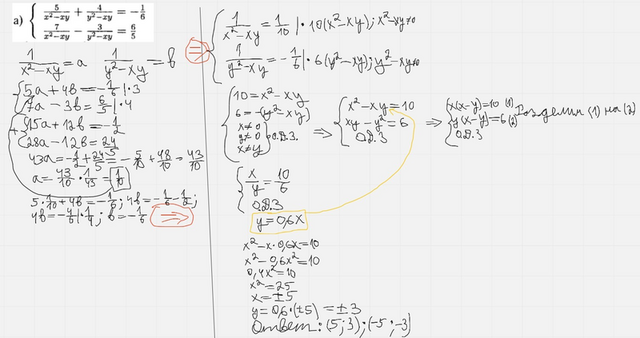 а) { 5/(x²−xy) + 4/(y²−xy) = −1/6
7/(x²−xy) − 3/(y²−xy) = 6/5
1/(x²−xy) = a 1/(y²−xy) = b
{ 5a + 4b = −1/6 | · 3
7a − 3b = 6/5 | · 4
+ { 15a + 12b = −1/2
28a − 12b = 24/5
43a = −1/2 + 24/5 = −5/10 + 48/10 = 43/10
a = 43/10 · 1/43 = 1/10
5 · 1/10 + 4b = −1/6; 4b = −1/6 − 1/2;
4b = −4/6 | · 1/4; b = −1/6 ⇒
⇒ { 1/(x²−xy) = 1/10 | · 10(x²−xy); x²−xy≠0
1/(y²−xy) = −1/6 | · 6(y²−xy); y²−xy≠0
{ 10 = x²−xy
6 = −(y²−xy)
x≠0
y≠0
x≠y } О.Д.З.
⇒ { x²−xy = 10
xy − y² = 6
О.Д.З
⇒ { x(x−y) = 10 (1)
y(x−y) = 6 (2)
О.Д.З
Разделим (1) на (2)
{ x/y = 10/6
О.Д.З
y = 0,6x
x² − x · 0,6x = 10
x² − 0,6x² = 10
0,4x² = 10
x² = 25
x = ±5
y = 0,6 · (±5) = ±3
Ответ: (5; 3); (−5; −3)